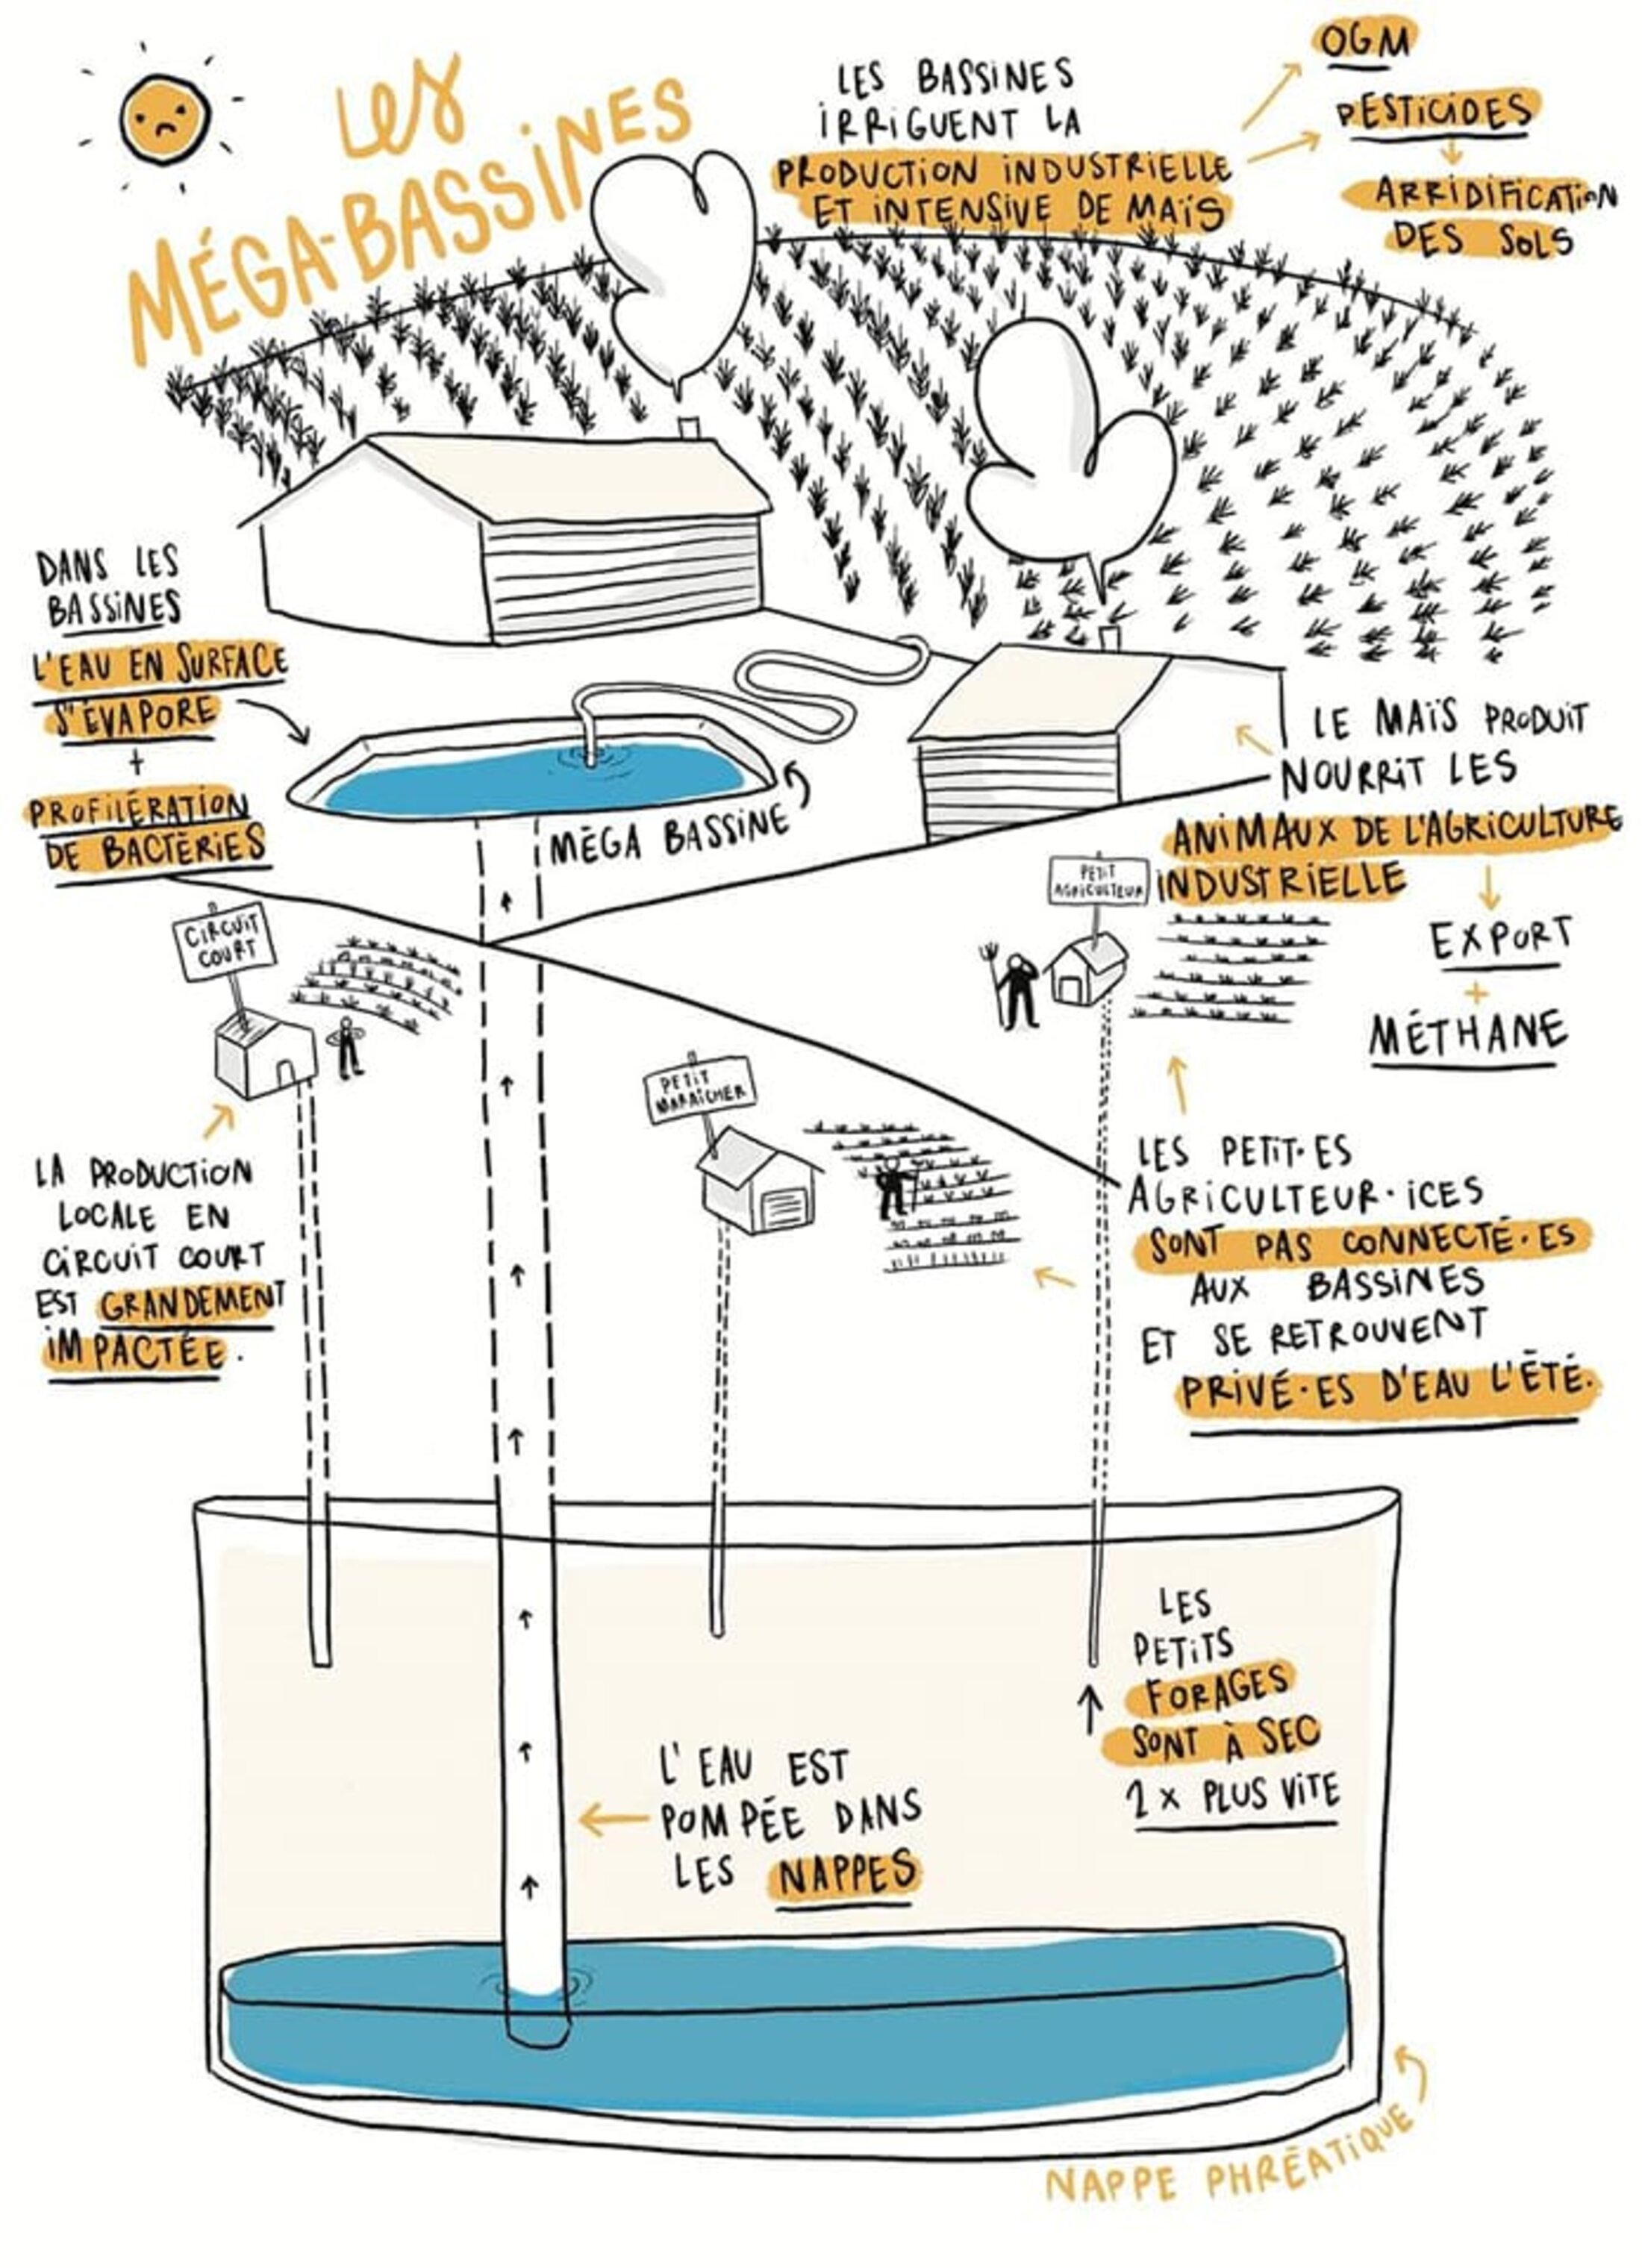 LES
MÉGA-BASSINES
LES BASSINES
IRRIGUENT LA
PRODUCTION INDUSTRIELLE
ET INTENSIVE DE MAÏS
OGM
PESTICIDES
ARRIDIFICATION
DES SOLS
DANS LES
BASSINES
L'EAU EN SURFACE
S'ÉVAPORE
+
PROFILÉRATION
DE BACTÉRIES
MÉGA BASSINE
LE MAÏS PRODUIT
NOURRIT LES
ANIMAUX DE L'AGRICULTURE
INDUSTRIELLE
EXPORT
+
MÉTHANE
PETIT
AGRICULTEUR
CIRCUIT
COURT
PETIT
MARAÎCHER
LA PRODUCTION
LOCALE EN
CIRCUIT COURT
EST GRANDEMENT
IMPACTÉE.
LES PETIT·ES
AGRICULTEUR·ICES
SONT PAS CONNECTÉ·ES
AUX BASSINES
ET SE RETROUVENT
PRIVÉ·ES D'EAU L'ÉTÉ.
LES
PETITS
FORAGES
SONT À SEC
2 X PLUS VITE
L'EAU EST
POMPÉE DANS
LES NAPPES
NAPPE PHRÉATIQUE